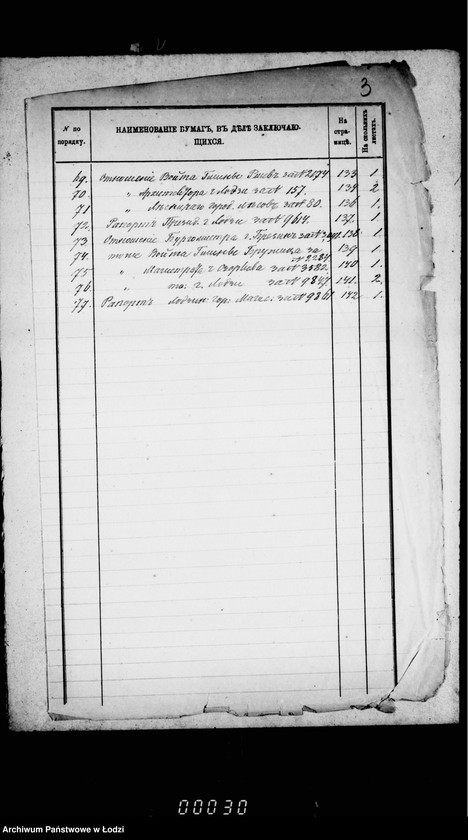 3
№ по порядку.
НАИМЕНОВАНІЕ БУМАГЪ, ВЪ ДѢЛѢ ЗАКЛЮЧАЮ-
ЩИХСЯ.
На стра-
ницѣ.
На сколькихъ листахъ.
69. Отношеніе Войта Гмины за № 2174 133 1.
70 " Архитектора г. Лодзи за № 157. 134 2
71 " город. лѣсовъ за № 80. 136 1,
72, Рапортъ Презид. г. Лодзи за № 9614. 137. 1.
73 Отношеніе Бургомистра г. Брезинъ за № 138. 1.
74. тоже Войта Гмины Бружица за 139 1.
№ 2284
75 " Магистрата г. Озоркова за № 3382. 140 1.
76 " то. г. Лодзи за № 9847 141. 2.
77. Рапортъ Лодзин. гор. Магис. за № 9861 142. 1.
00030
Archiwum Państwowe w Łodzi